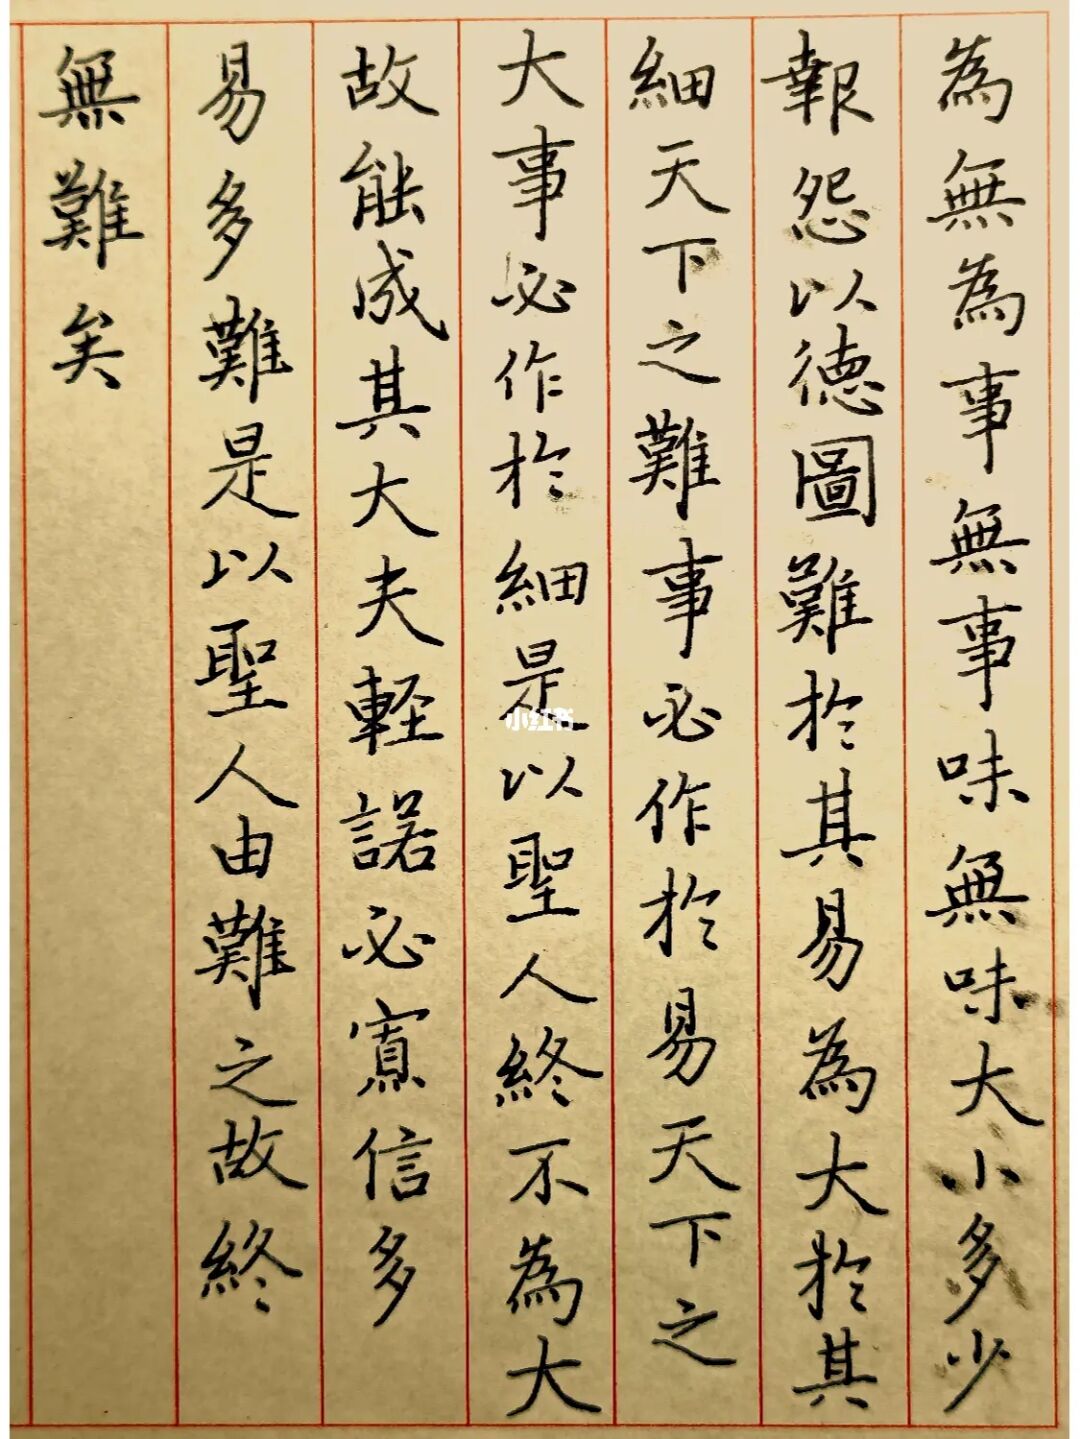 為無為事無事味無味大小多少
報怨以德圖難於其易為大於其
細天下之難事必作於易天下之
大事必作於細是以聖人終不為大
故能成其大夫輕諾必寡信多
易多難是以聖人由難之故終
無難矣
小红书